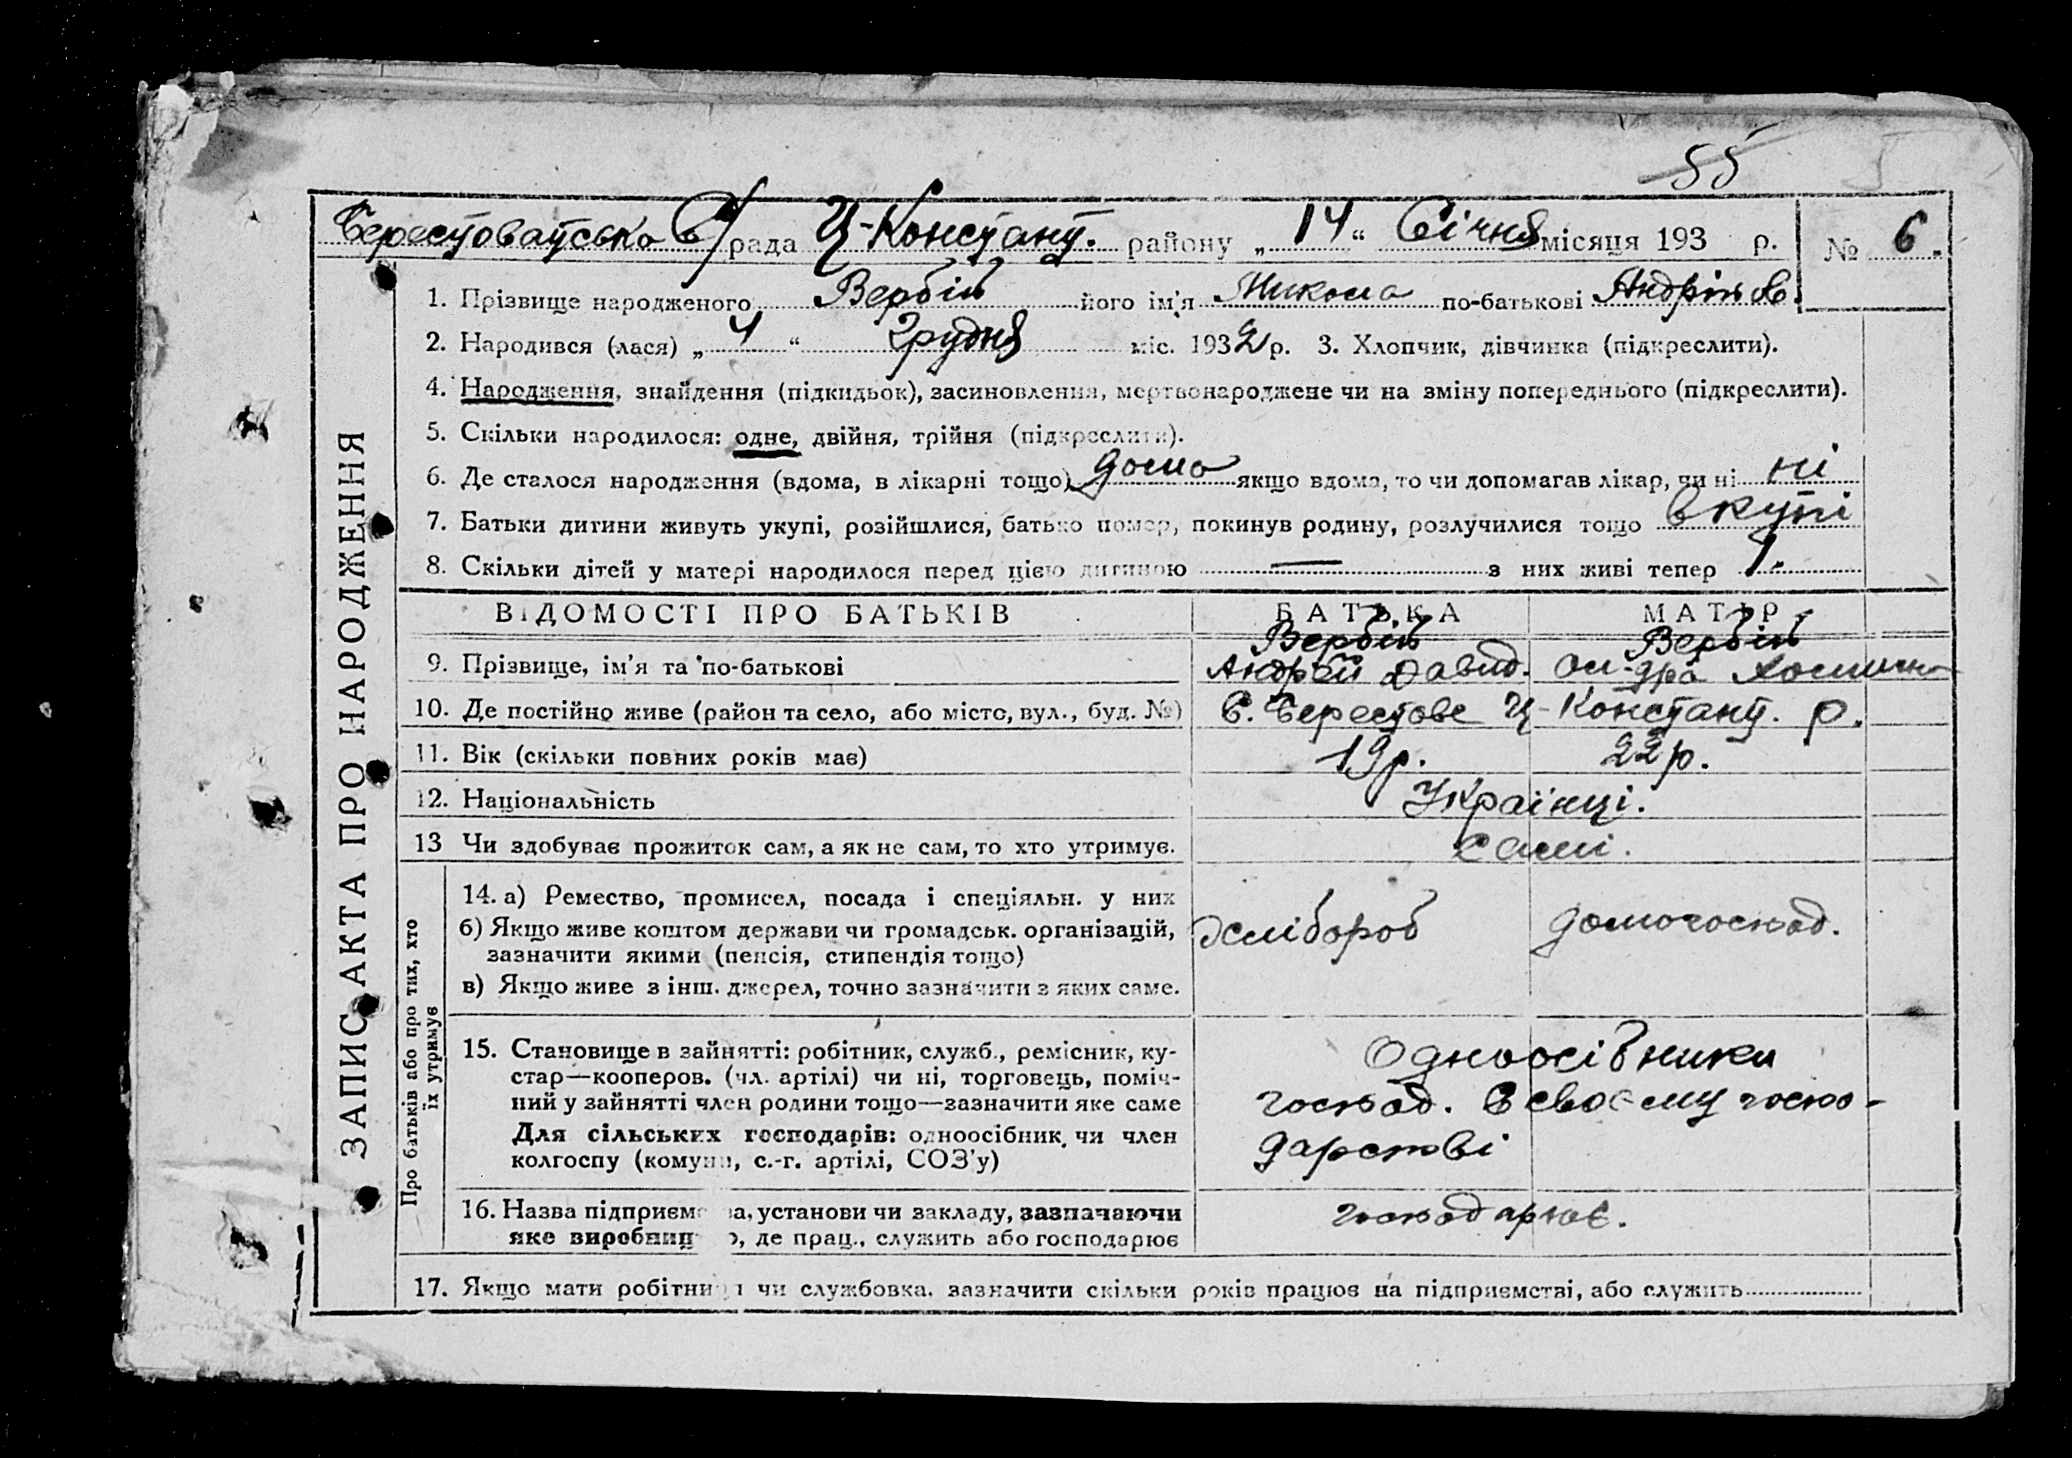 55
Берестоватсько С/рада Ц-Констант. району „14“ Січня місяця 193 р. № 6
1. Прізвище народженого Вербій його ім'я Микола по-батькові Андрійов.
2. Народився (лася) „4“ Грудня міс. 1932 р. 3. Хлопчик, дівчинка (підкреслити).
4. Народження, знайдення (підкидьок), засиновлення, мертвонароджене чи на зміну попереднього (підкреслити).
5. Скільки народилося: одне, двійня, трійня (підкреслити).
6. Де сталося народження (вдома, в лікарні тощо) дома якщо вдома, то чи допомагав лікар, чи ні ні
7. Батьки дитини живуть укупі, розійшлися, батько помер, покинув родину, розлучилися тощо вкупі
8. Скільки дітей у матері народилося перед цією дитиною — з них живі тепер 1.
ЗАПИС АКТА ПРО НАРОДЖЕННЯ
ВІДОМОСТІ ПРО БАТЬКІВ БАТЬКА МАТІР
Вербій Вербій
9. Прізвище, ім'я та по-батькові Андрій Давид.
10. Де постійно живе (район та село, або місто, вул., буд. №) С. Берестове Ц-Констант. р.
11. Вік (скільки повних років має) 19 р. 22 р.
12. Національність Українці.
13 Чи здобуває прожиток сам, а як не сам, то хто утримує. Самі.
Про батьків або про тих, хто
їх утримує
14. а) Ремество, промисел, посада і спеціяльн. у них
б) Якщо живе коштом держави чи громадськ. організацій, хлібороб домогоспод.
зазначити якими (пенсія, стипендія тощо)
в) Якщо живе з інш. джерел, точно зазначити з яких саме.
15. Становище в зайнятті: робітник, служб., ремісник, ку- Одноосібники
стар—кооперов. (чл. артілі) чи ні, торговець, поміч- господ. в своєму госпо-
ний у зайнятті член родини тощо—зазначити яке саме
Для сільських господарів: одноосібник чи член дарстві
колгоспу (комуни, с.-г. артілі, СОЗ'у)
16. Назва підприємства, установи чи закладу, зазначаючи господарює.
яке виробництво, де прац., служить або господарює
17. Якщо мати робітниця чи службовка, зазначити скільки років працює на підприємстві, або служить